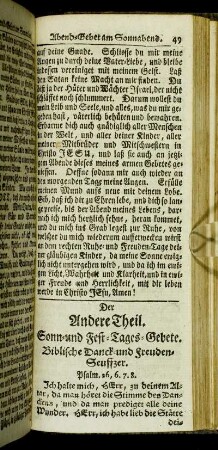 Abend-Gebet am Sonnabend. 49
auf deine Gnade. Schliesse du mir meine
Augen zu durch deine Vater-Liebe, und bleibe
dessen vereiniget mit meinem Geist. Laß
den Satan keine Macht an mir finden. Du
bist ja der Hüter und Wächter Israel, der nicht
schläffet noch schlummert. Darum wollest du
mein Leib und Seele, und alles, was du mir ge-
geben hast, väterlich behüten und bewahren.
Erbarme dich auch gnädiglich aller Menschen
in der Welt, und aller deiner Kinder, aller
meiner Mitbrüder und Mitschwestern in
Christo JESU, und laß sie auch an jetzi-
gen Abende dieses meines armen Gebets ge-
niessen. Oeffne sodann mir auch wieder an
dem morgenden Tage meine Augen. Erfülle
meinen Mund aufs neue mit deinem Lobe.
Gib, daß ich dir zu Ehren lebe, und dich so lan-
ge lobsinge, bis der Abend meines Lebens, dar-
nach ich mich hertzlich sehne, heran kommet,
und du mich ins Grab legest zur Ruhe, von
wannen du mich wiederum auferwecken wirst
zu der rechten Ruhe- und Freuden-Tage dei-
ner gläubigen Kinder, da meine Sonne ewig-
lich nicht untergehen wird, und da ich im ewi-
gen Licht, Wahrheit und Klarheit, und in ewi-
ger Freude und Herrlichkeit, mit dir leben
werde in Christo JEsu, Amen!
Der
Andere Theil.
Sonn- und Fest-Tages-Gebete.
Biblische Danck- und Freuden-
Seufftzer.
Psalm. 26, 6. 7. 8.
Ich halte mich, HErr, zu deinem Al-
tar, da man höret die Stimme des Dan-
ckens, und da man prediget alle deine
Wunder. HErr, ich habe lieb die Stätte
dei-